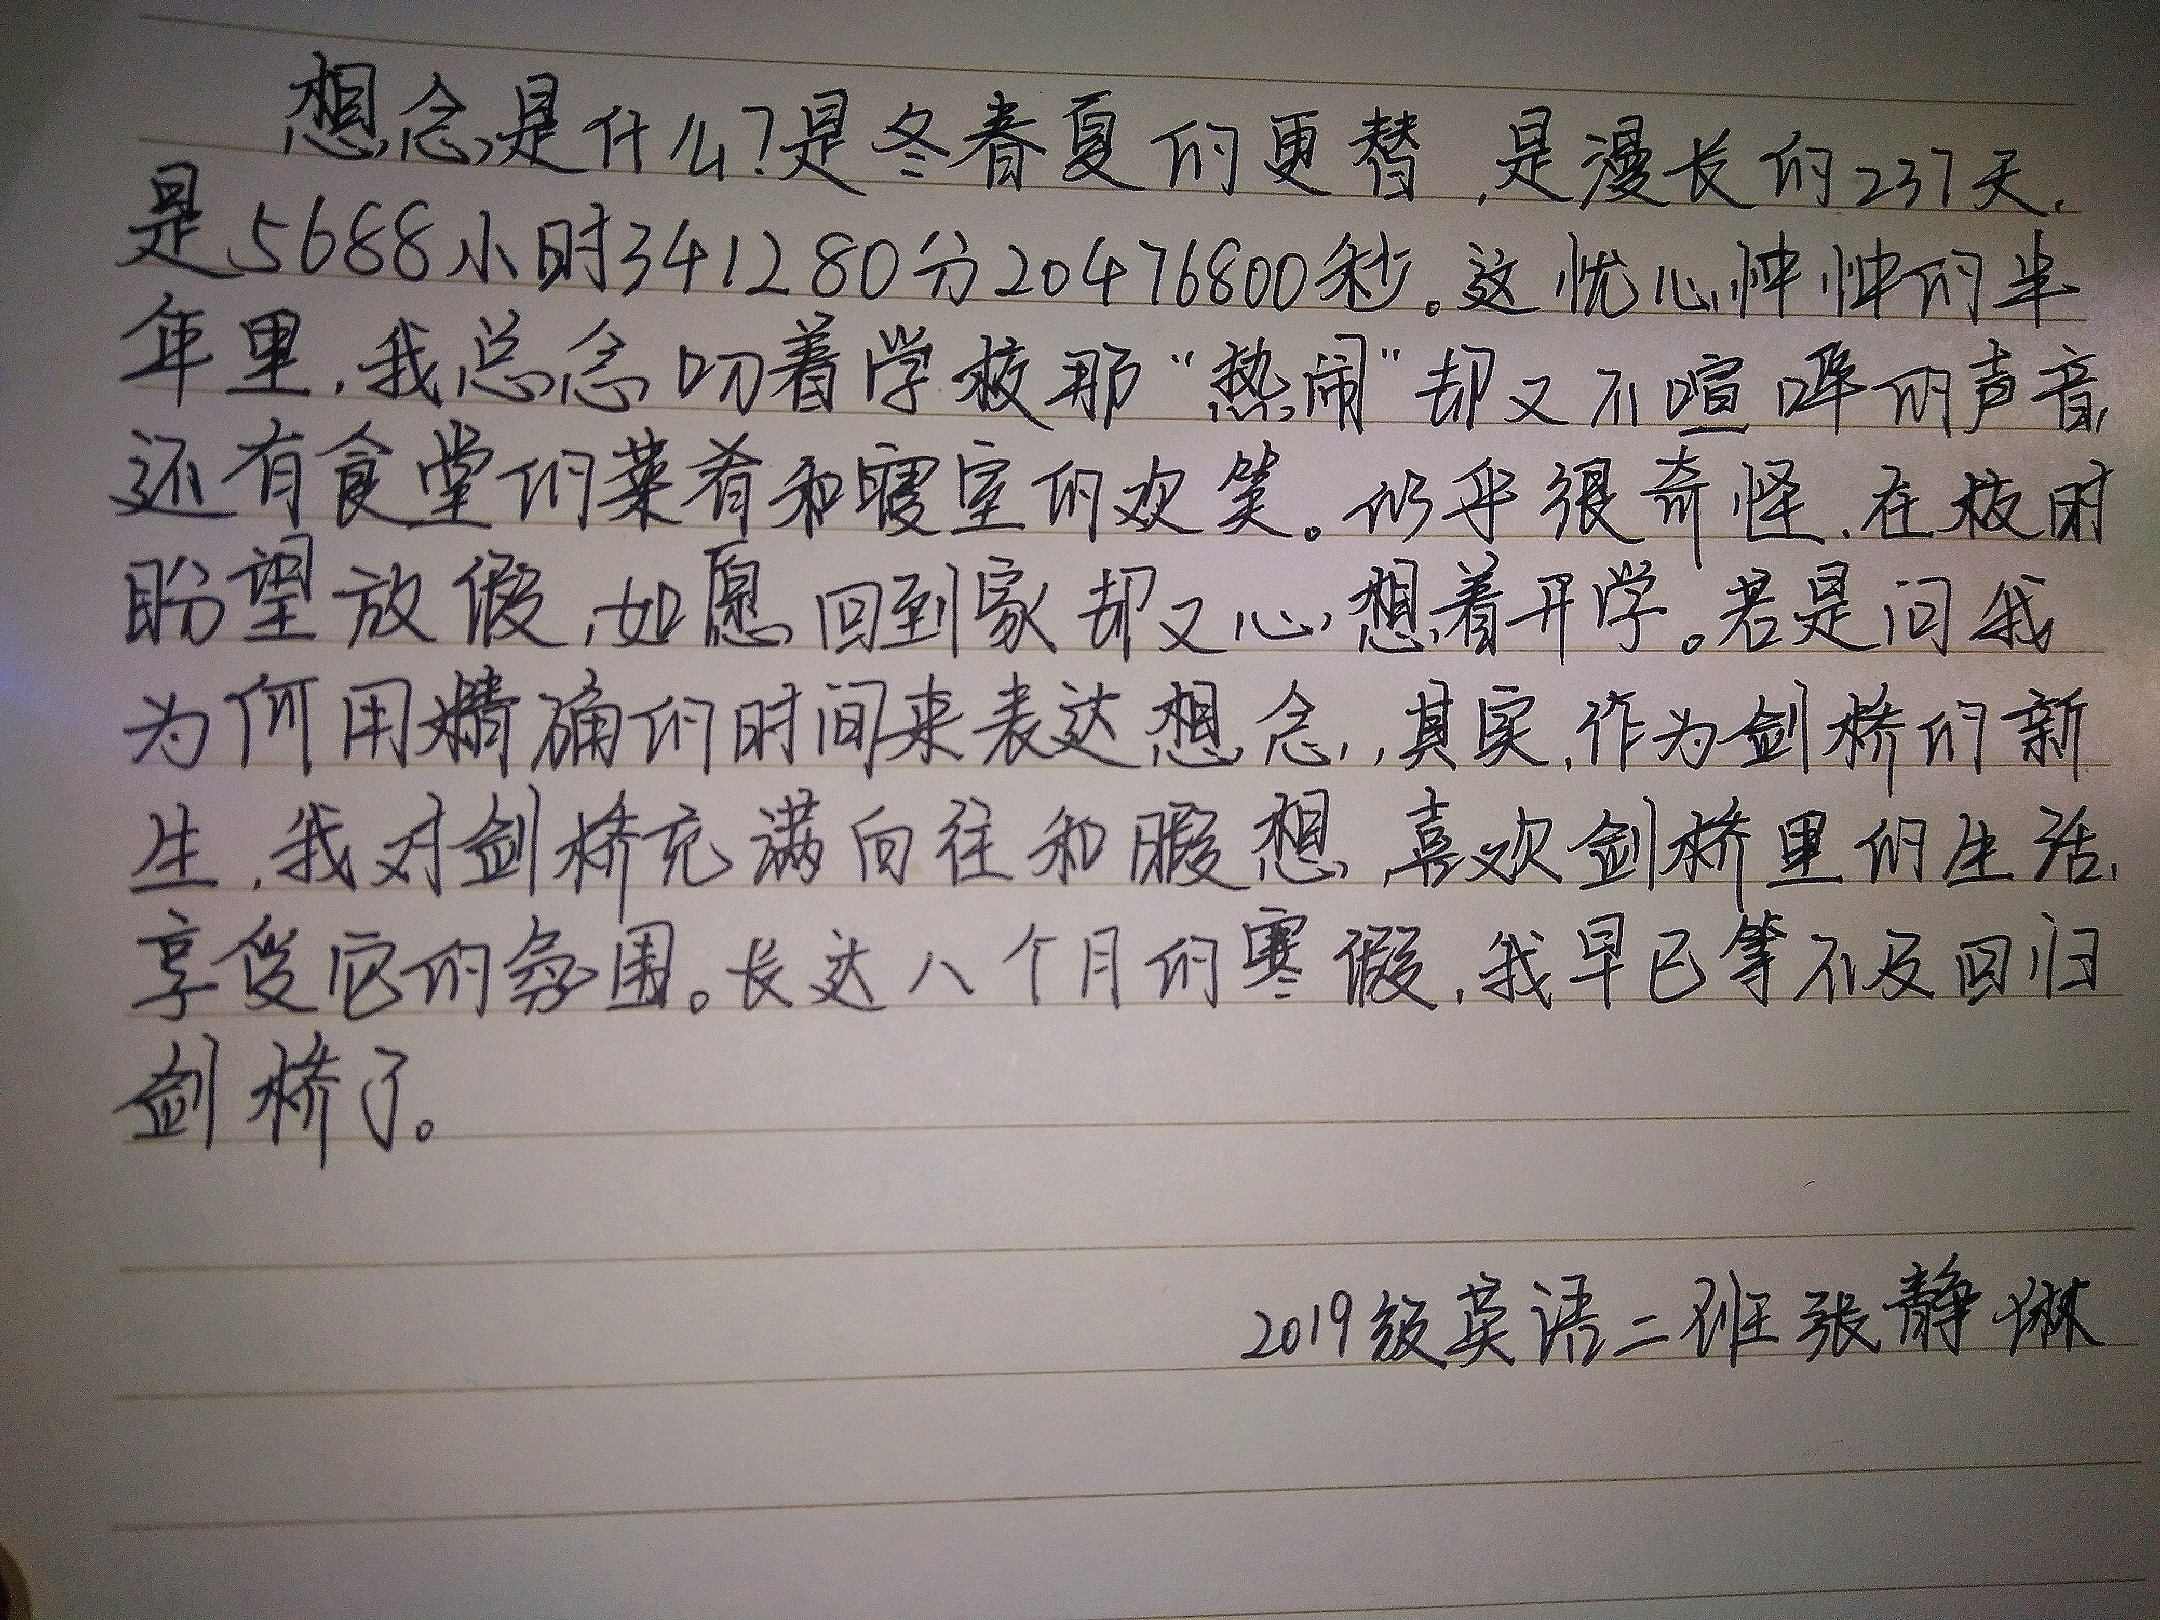 想念是什么?是冬春夏的更替,是漫长的237天,
是5688小时341280分20476800秒。这忧心忡忡的半
年里,我总念叨着学校那“热闹”却又不喧哗的声音,
还有食堂的菜肴和寝室的欢笑。似乎很奇怪,在校时
盼望放假,如愿回到家却又心想着开学。若是问我
为何用精确的时间来表达想念,,其实,作为剑桥的新
生,我对剑桥充满向往和暇想,喜欢剑桥里的生活,
享受它的氛围。长达八个月的寒假,我早已等不及回归
剑桥了。
2019级英语二班张静琳